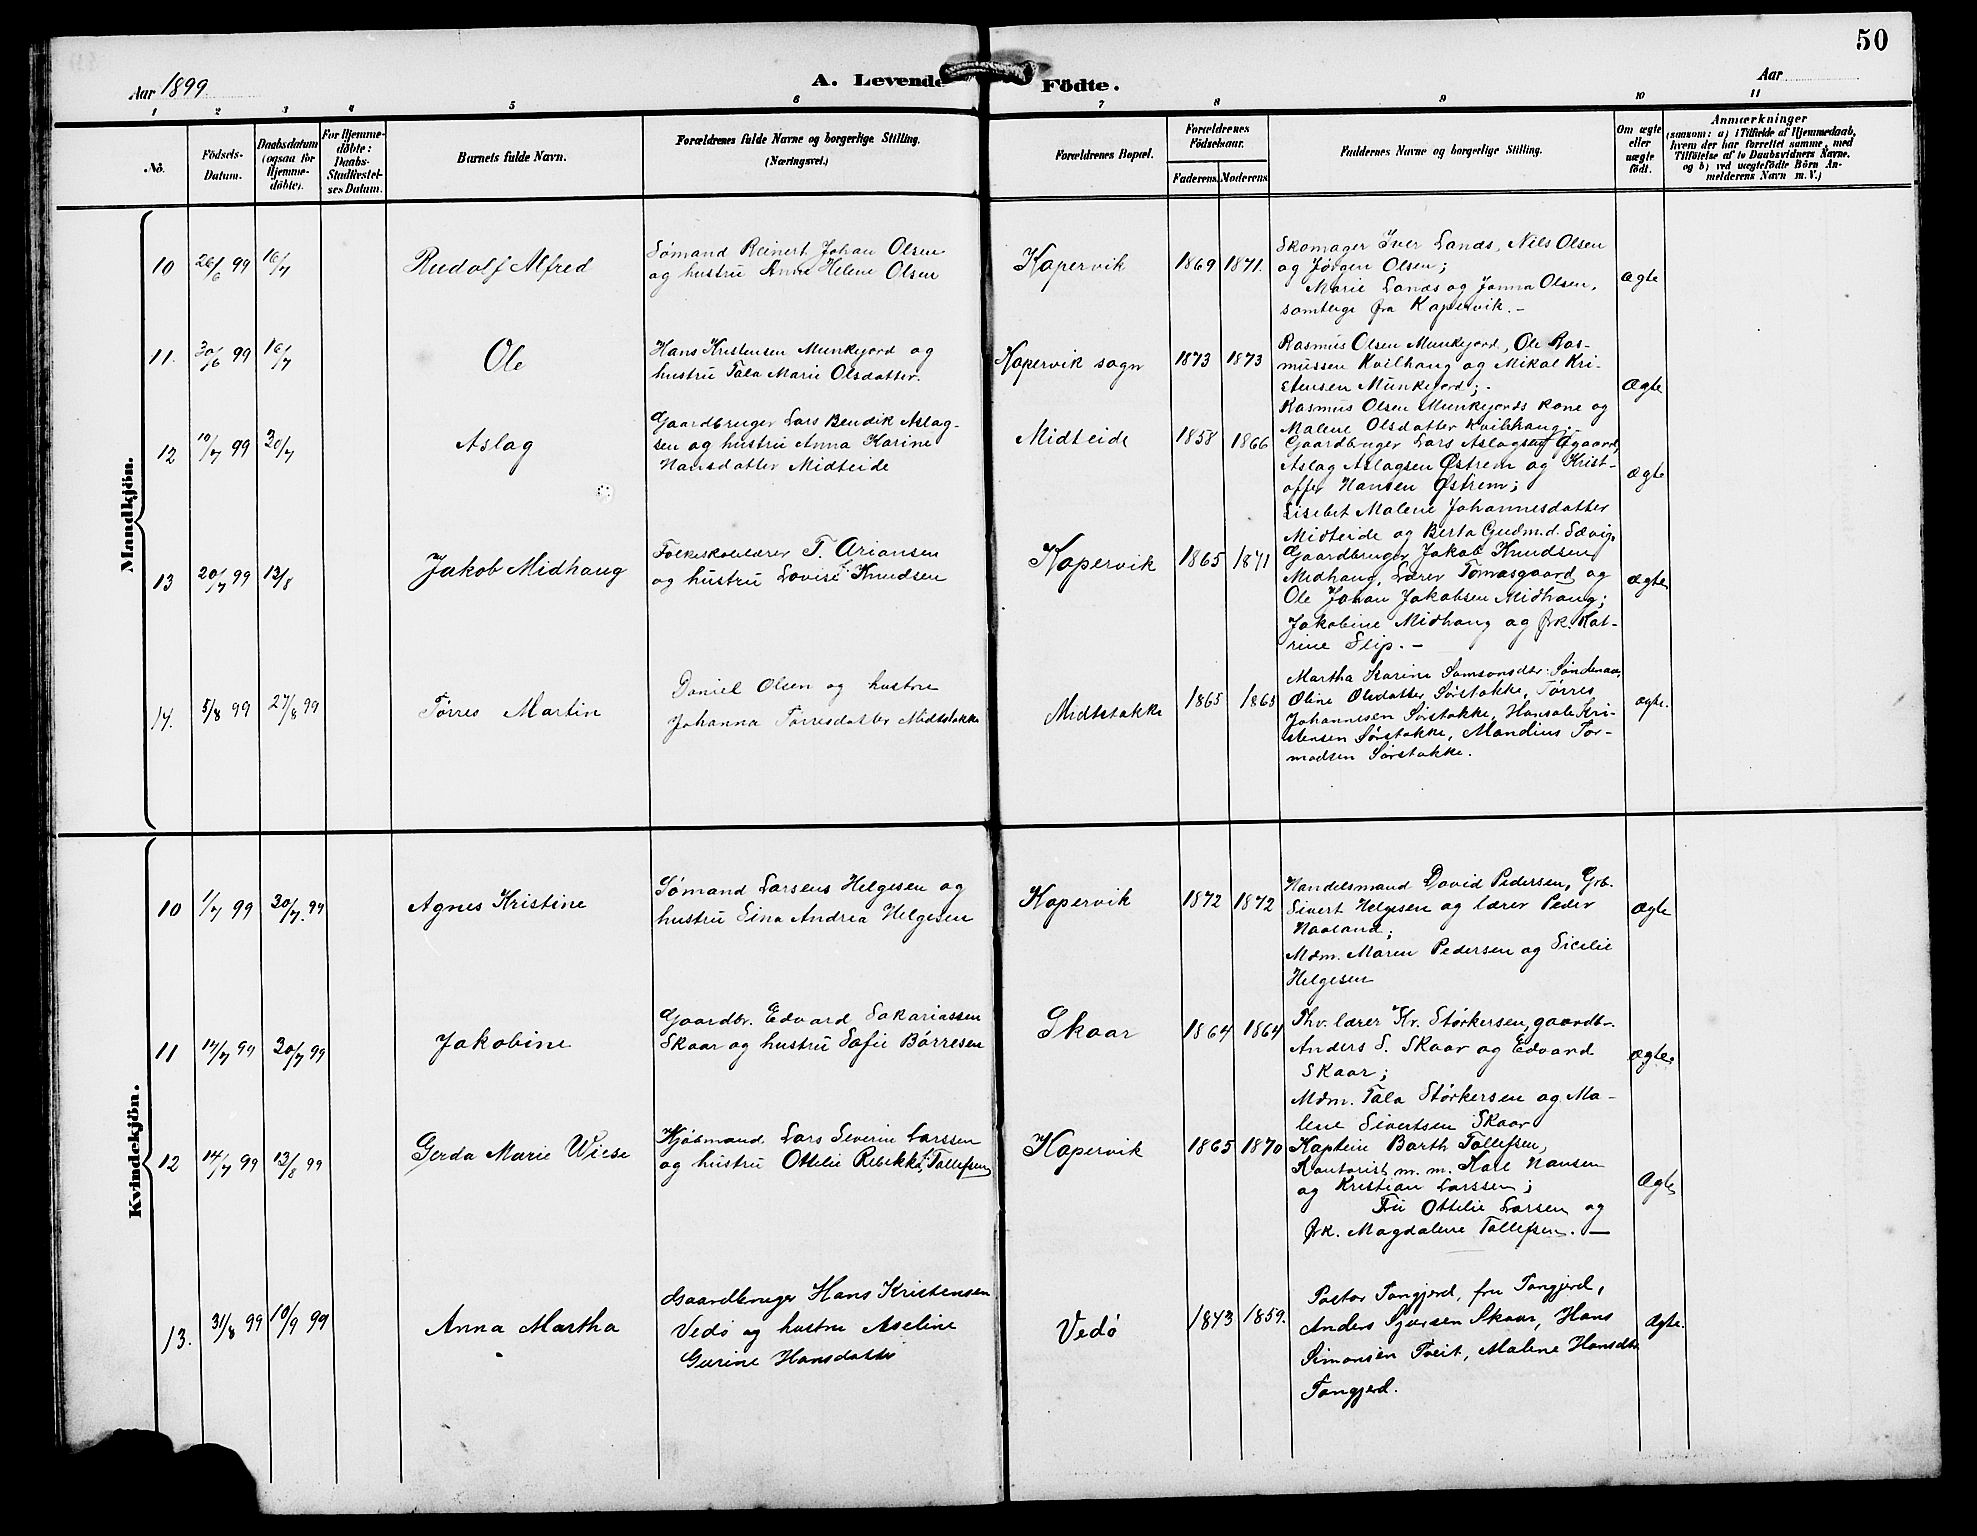 50
Aar 1899
A. Levende Födte.
Aar
1 2 3 4 5 6 7 8 9 10 11
No.
Födsels-
Datum.
Daabsdatum
(ogsaa for
Hjemme-
döbte).
For Hjemme-
døbte:
Daabs-
Stadfæstel-
ses Datum.
Barnets fulde Navn.
Forældrenes fulde Navne og borgerlige Stilling.
(Næringsvei.)
Forældrenes Bopæl.
Forældrenes
Födselsaar.
Faderens. Moderens.
Faddernes Navne og borgerlige Stilling.
Om ægte
eller
uægte
født.
Anmærkninger
(saasom: a) i Tilfælde af Hjemmedaab,
hvem der har forrettet samme, med
Tilföielse af to Daabsvidners Navne,
og b) ved uægtefödte Börn An-
melderens Navn m. V.)
Mandkjön.
10
26/6 99
16/7
Rudolf Alfred
Sømand Reinert Johan Olsen
og hustru Anna Helene Olsen
Kopervik
1869
1871.
Skomager Iver Lands, Nils Olsen
og Jørgen Olsen;
Marie Lands og Janna Olsen,
samtlige fra Kopervik. -
Ægte
11.
30/6 99
16/7
Ole
Hans Kristensen Munkejord og
hustru Tala Marie Olsdatter.
Kopervik sogn
1873
1873
Rasmus Olsen Munkejord, Ole Ras-
mussen Kvilhaug og Mikal Kri-
stensen Munkejord;.
Rasmus Olsen Munkejords kone og
Malene Olsdatter Kvilhaug.
Ægte
12
10/7 99
30/7
Aslag
Gaardbruger Lars Bendik Aslag-
sen og hustru Anna Karine
Hansdatter Midteide
Midteide
1858
1866
Gaardbruger Lars Aslagsen Øgaard,
Aslag Aslagsen Østrem og Krist-
offer Hansen Østrem;
Lisebet Malene Johannesdatter
Midteide og Berta Gudm.d. Sævig.
Ægte
13
20/7 99
13/8
Jakob Midhaug
Folkeskolelærer T. Ariansen
og hustru Lovise f. Knudsen
Kopervik
1865
1871
Gaardbruger Jakob Knudsen
Midhaug, Lærer Tomasgaard og
Ole Johan Jakobsen Midhaug;
Jakobine Midhaug og Frk. Kat-
rine Slip. -
Ægte
14.
5/8 99
27/8 99
Tørres Martin
Daniel Olsen og hustru
Johanna Tørresdatter Midtstokke
Midtstokke
1865
1865
Martha Karine Samsonsdtr. Søndenaa,
Oline Olsdatter Sørstokke, Tørres
Johannesen Sørstokke, Hansole Kri-
stensen Sørstokke, Mandius Tor-
madsen Sørstokke.
Ægte.
Kvindekjön.
10
1/7 99
30/7. 99
Agnes Kristine
Sømand Larsens Helgesen og
hustru Sina Andrea Helgesen
Kopervik
1872
1872
Handelsmand David Pedersen, Grb.
Sivert Helgesen og lærer Peder
Naaland;
Mdm. Maren Pedersen og Sicelie
Helgesen
Ægte
11
14/7 99
30/7 99
Jakobine
Gaardbr. Edvard Sakariassen
Skaar og hustru Sofie Børresen
Skaar
1864
1864
Thv. lærer Kr. Størkersen, gaardbr.
Anders S. Skaar og Edvard
Skaar;
Mdm. Tala Størkersen og Ma-
lene Sivertsen Skaar
Ægte
12
14/7 99
13/8 99
Gerda Marie Wiese
Kjøbmand Lars Severin Larssen
og hustru Ottelie Ribekka f. Tallefsen
Kopervik
1865
1870
Kaptein Barth Tallefsen,
Kontorist m. m. Karl Hansen
og Kristian Larssen;
Fru Ottelie Larsen og
Frk. Magdalene Tallefsen. —
Ægte
13.
31/8 99
10/9 99
Anna Martha
Gaardbruger Hans Kristensen
Vedø og hustru Aseline
Gurine Hansdatter
Vedø
1843
1859.
Pastor Tangjerd, fru Tangjerd,
Anders Sjursen Skaar, Hans
Simonsen Tveit, Malene Hansdtr
Tangjerd.
Ægte.